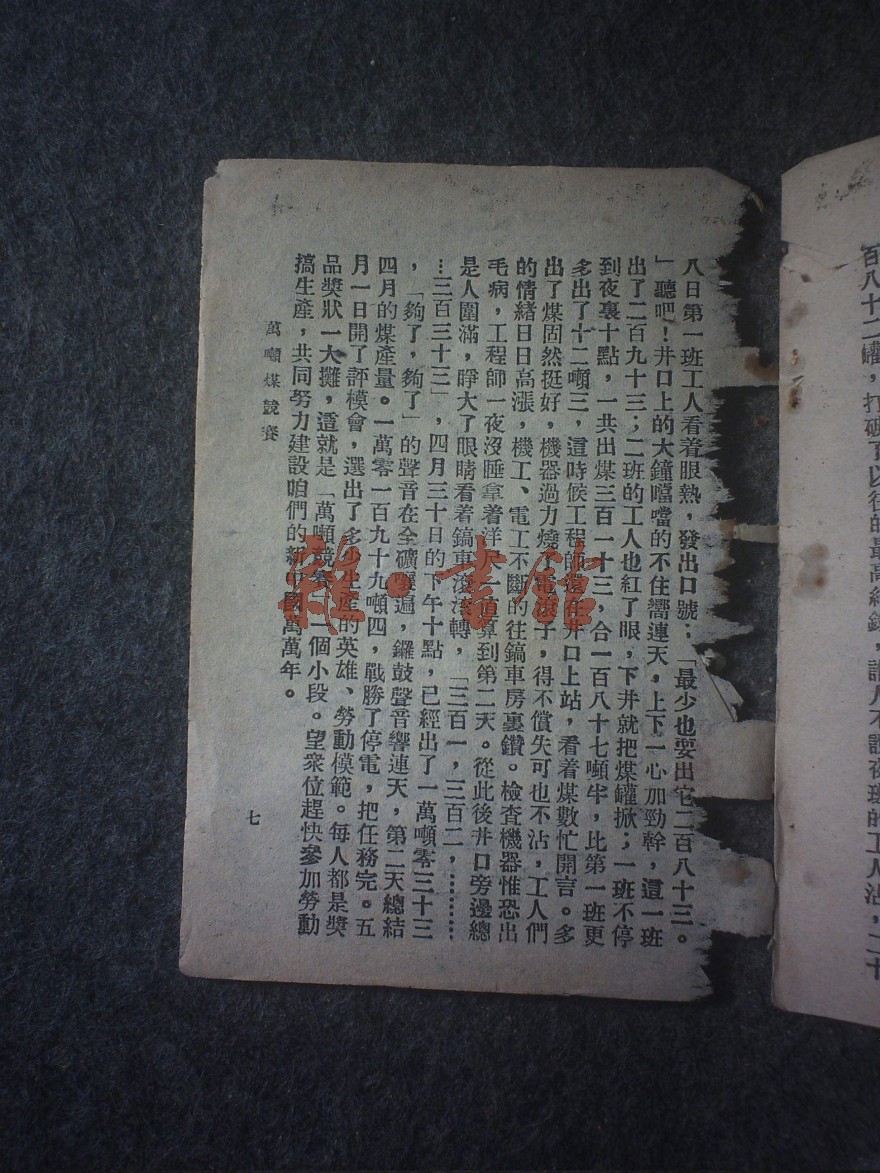 百八十二罐，打破了以往的最高紀錄，讓人不讚夜班的工人沾，二十
八日第一班工人看着眼熱，發出口號；「最少也要出它二百八十三。
」聽吧！井口上的大鐘噹噹的不住嚮連天，上下一心加勁幹，這一班
出了二百九十三；二班的工人也紅了眼，下井就把煤罐掀；一班不停
到夜裏十點，一共出煤三百一十三，合一百八十七噸半，比第一班更
多出了十二噸三，這時候工程師還在井口上站，看着煤數忙開言。多
出了煤固然挺好，機器過力燒了電滾子，得不償失可也不沾，工人們
的情緒日日高漲，機工、電工不斷的往鎬車房裏鑽。檢查機器惟恐出
毛病，工程師一夜沒睡拿着洋尺一直算到第二天。從此後井口旁邊總
是人圍滿，睜大了眼睛看着鎬車滾滾轉，「三百一，三百二，…………
…三百三十三」，四月三十日的下午十點，已經出了一萬噸零三十三
，「夠了，夠了」的聲音在全礦嚷遍，鑼鼓聲音響連天，第二天總結
四月的煤產量。一萬零一百九十九噸四，戰勝了停電，把任務完。五
月一日開了評模會，選出了多少生產的英雄、勞動模範。每人都是獎
品獎狀一大攤，這就是「萬噸競賽」一個小段。望衆位趕快參加勞動
搞生產，共同努力建設咱們的新中國萬萬年。
萬噸煤競賽
七
雜·書館